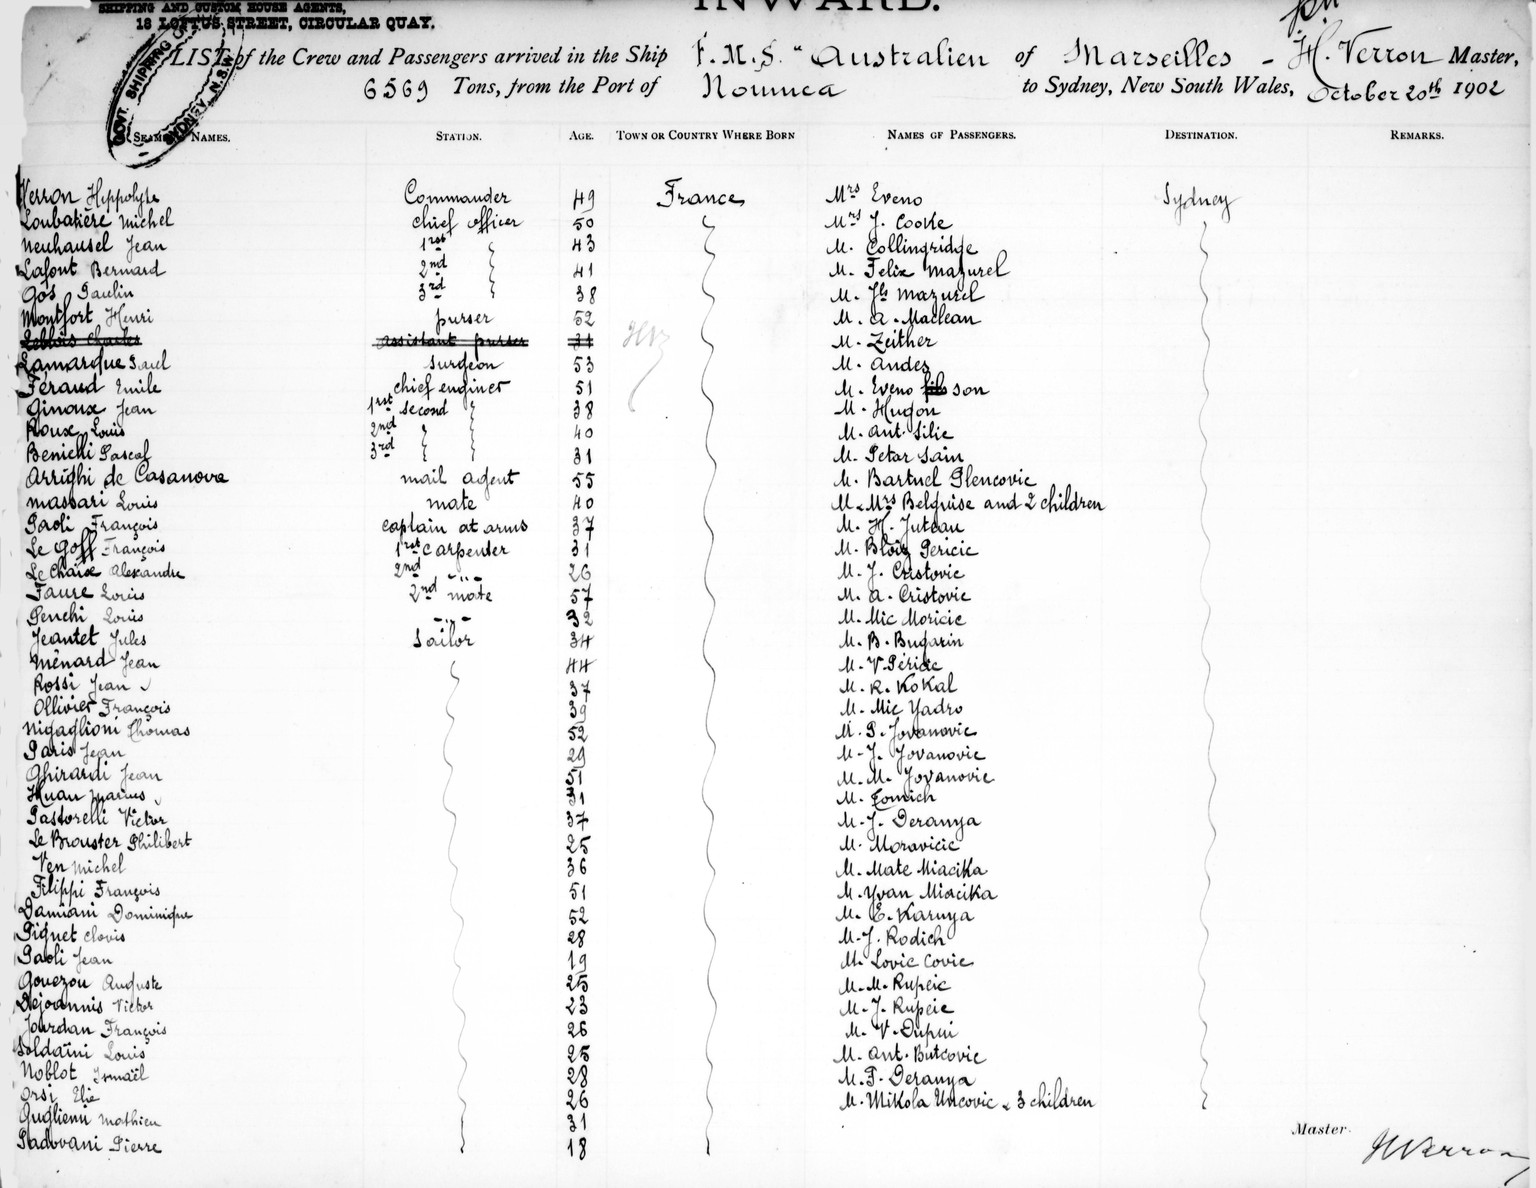 SHIPPING AND CUSTOM HOUSE AGENTS,
18 LOFTUS STREET, CIRCULAR QUAY.
INWARD.
GOVT SHIPPING
SYDNEY, N.S.W.
LIST of the Crew and Passengers arrived in the Ship F.M.S. "Australien of Marseilles - H. Verron Master,
6569 Tons, from the Port of Noumea to Sydney, New South Wales, October 20th 1902
SEAMEN'S NAMES. STATION. AGE. TOWN OR COUNTRY WHERE BORN NAMES OF PASSENGERS. DESTINATION. REMARKS.
Verron Hippolyte Commander 49 France Mrs Eveno Sydney
Loubatière Michel chief officer 50 Mrs J. Cooke
Neuhausel Jean 1rst 43 M. Collingridge
Lafont Bernard 2nd 41 M. Felix Mazurel
Gos Paulin 3rd 38 M. Jls Mazurel
Montfort Henri purser 52 M. A. Maclean
Leblois Charles assistant purser 31 M. Zeither
Lamarque Paul surgeon 53 M. Andes
Féraud Emile chief enginer 51 M. Eveno fils son
Ginoux Jean 1rst second 38 M. Hugon
Roux Louis 2nd 40 M. Ant. Silic
Benichi Pascal 3rd 31 M. Petar Sain
Arrighi de Casanova mail agent 55 M. Bartuel Glencovic
Massari Louis mate 40 M. & Mrs Belguise and 2 children
Paoli François captain at arms 37 M. H. Juteau
Le Goff François 1rst carpenter 31 M. Blaiz Pericic
Le Chaix Alexandre 2nd -"- 26 M. J. Cristovic
Faure Louis 2nd mate 57 M. A. Cristovic
Penchi Louis -"- 32 M. Mic Moricic
Jeantet Jules Sailor 34 M. B. Bugarin
Ménard Jean 44 M. V. Péricic
Rossi Jean 37 M. R. Kokal
Ollivier François 39 M. Mic Yadro
Nigaglioni Thomas 52 M. P. Jovanovic
Paris Jean 29 M. J. Jovanovic
Ghirardi Jean 51 M. M. Jovanovic
Huan Marius 31 M. Tomich
Pastorelli Victor 37 M. J. Deranya
Le Brouster Philibert 25 M. Moravicic
Ven Michel 36 M. Mate Miacika
Filippi François 51 M. Yvan Miacika
Damiani Dominique 52 M. E. Karuya
Piquet Clovis 28 M. J. Rodich
Paoli Jean 19 M. Lovic Covic
Gouezou Auguste 25 M. M. Rupcic
Dejoannis Victor 23 M. J. Rupcic
Jourdan François 26 M. V. Dupui
Soldaïni Louis 25 M. Ant. Butcovic
Noblot Ismaël 28 M. F. Deranya
Orsi Elie 26 M. Mikola Uncovic & 3 children
Guglieni Mathieu 31
Padovani Pierre 18
Master.
HVerron